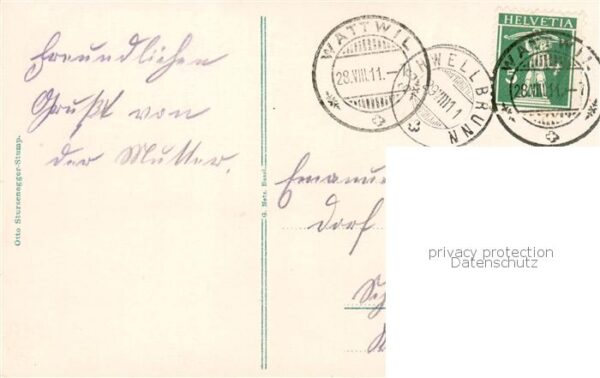 Freundlichen
Gruß von
der Mutter.
Otto Sturzenegger-Stump.
G. Metz, Basel.
WATTWIL
28.VIII.11.-
SCHWELLBRUNN
28 VIII 11
HELVETIA
WATTWIL
28.VIII.11.-7
Emanu
Dorf
privacy protection
Datenschutz